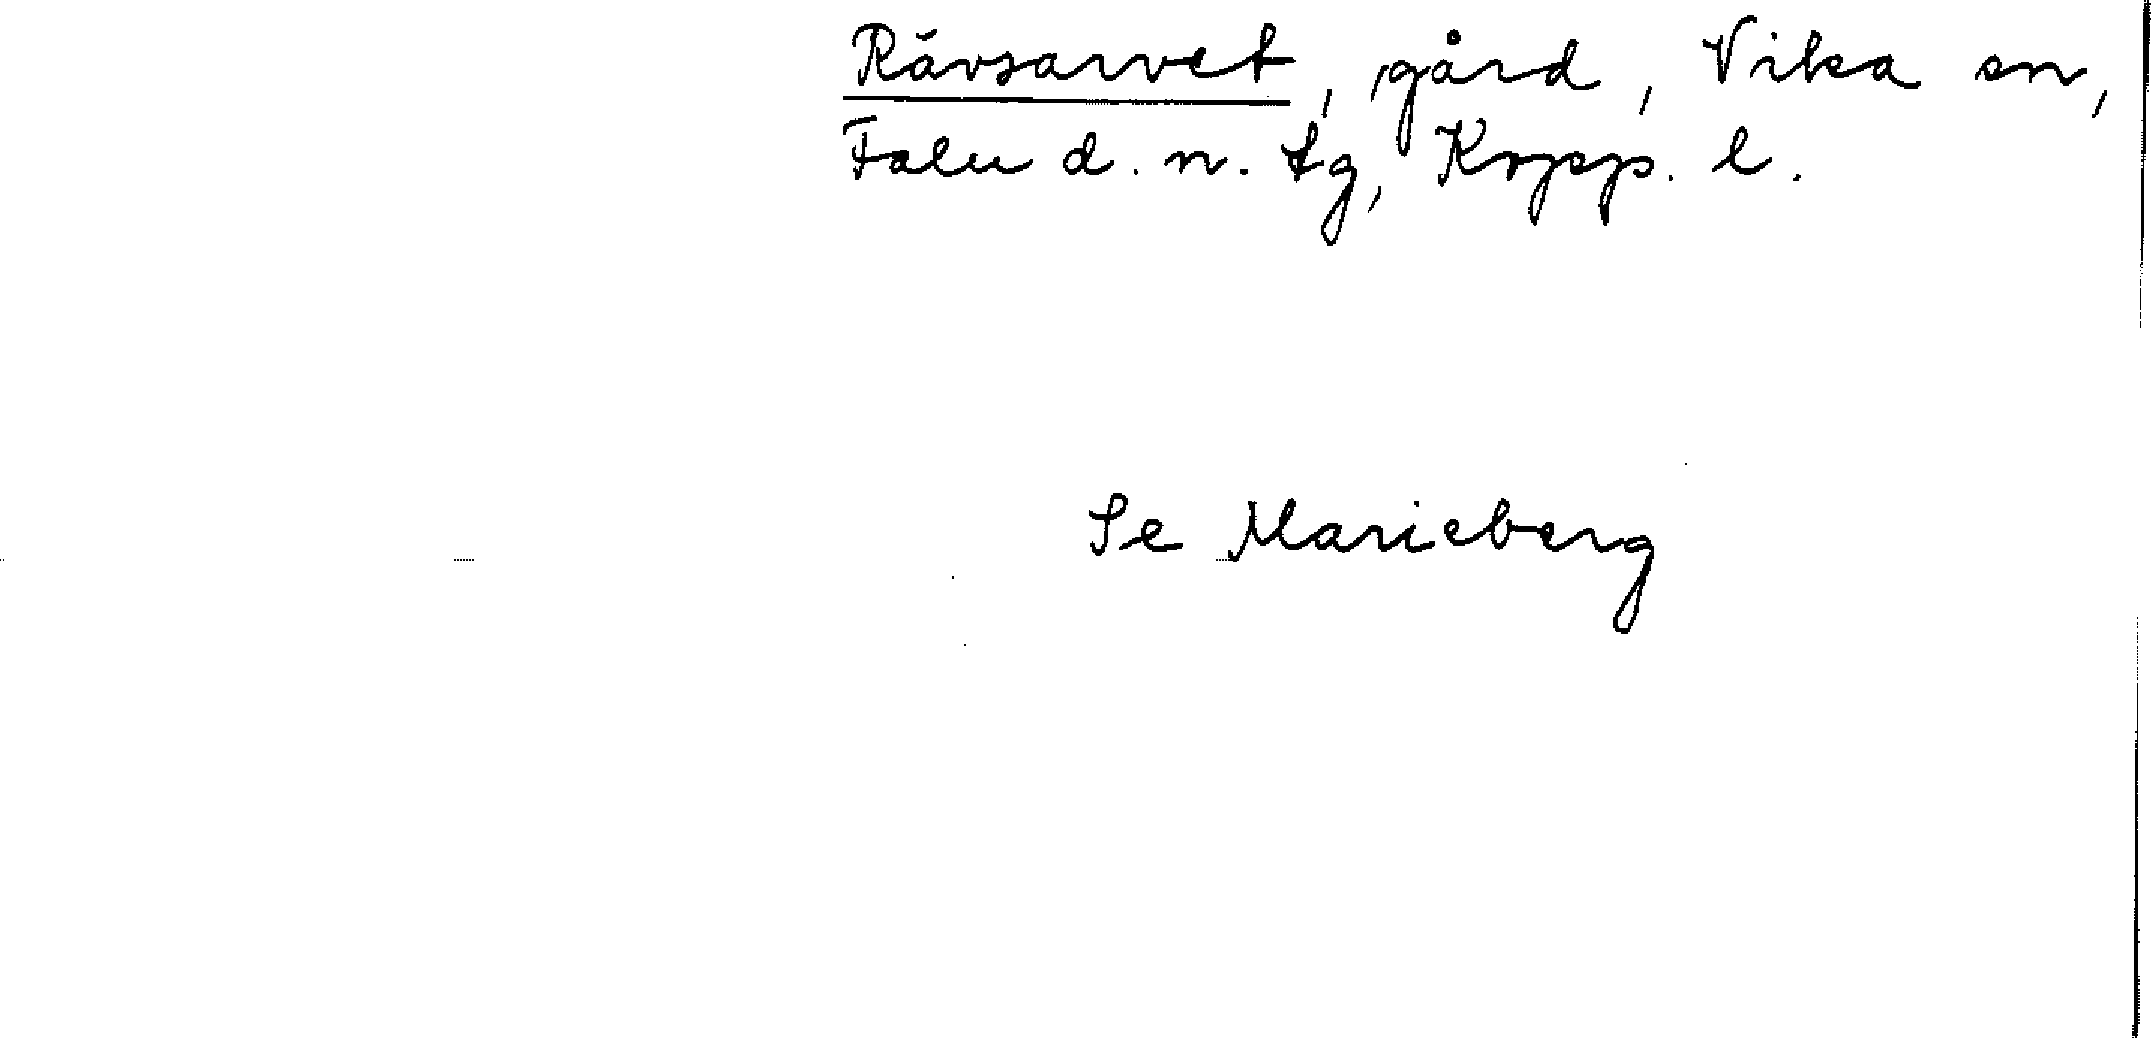 Rävsarvet, gård, Vika sn,
Falu d. n. tg, Kopp. l.
Se Marieberg